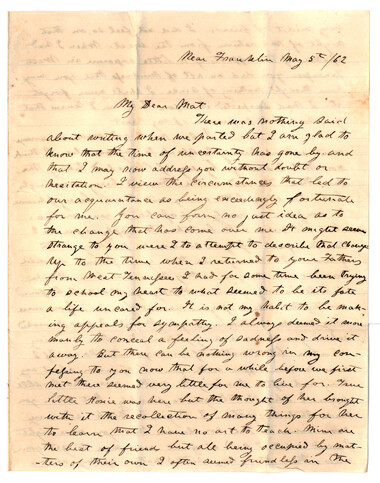 Near Franklin May 5th /62
My Dear Mat
There was nothing said
about writing when we parted but I am glad to
know that the time of uncertainty has gone by and
that I may now address you without doubt or
hesitation. I view the circumstances that led to
our acquaintance as being exceedingly fortunate
for me. You can form no just idea as to
the change that has come over me. It might seem
strange to you were I to attempt to describe that change
Up to the time when I returned to your Fathers
from West Tennessee I had for some time been trying
to school my heart to what seemed to be its fate
a life uncared for. It is not my habit to be mak-
ing appeals for sympathy. I always deemed it more
manly to conceal a feeling of sadness and drive it
away. But there can be nothing wrong in my con-
fessing to you now that for a while before we first
met there seemed very little for me to live for. True
little was here but the thought of her brought
with it the recollection of many things for her
to learn that I have no art to teach. Mine are
the best of friend but all being occupied by mat-
-ters of their own I often seemed friendless in the